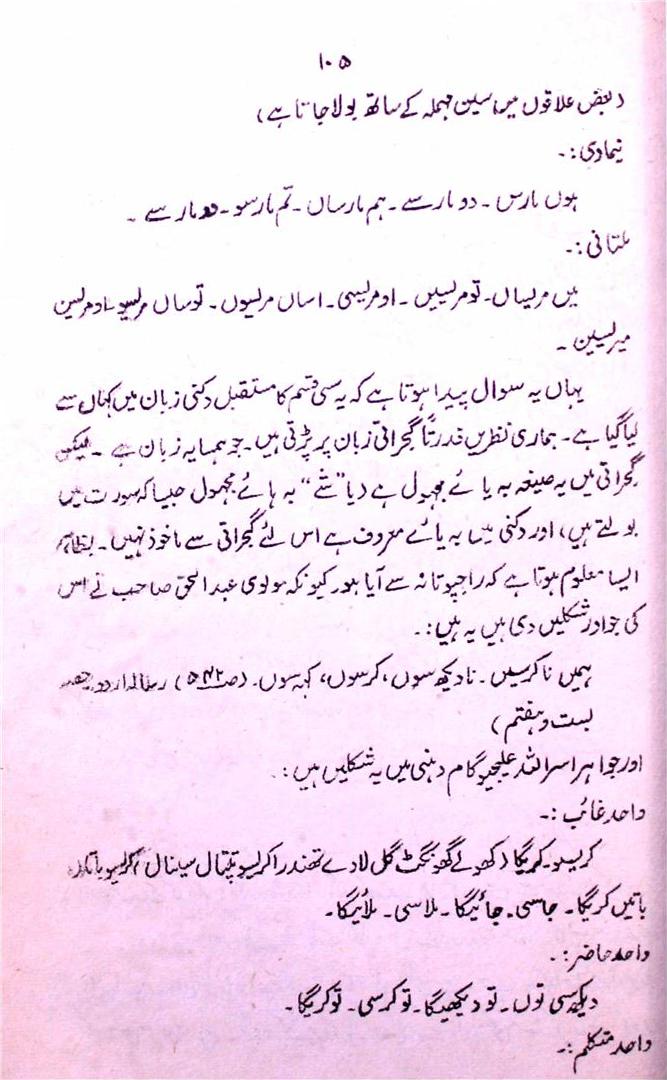 ۱۰۵
(بعض علاقوں میں سین مہملہ کے ساتھ بولا جاتا ہے)
نیماوی:۔
ہوں مارس ۔ دو مارسے ۔ ہم مارساں ۔ تم مارسو ۔ دو مارسے ۔
ملتانی:۔
میں مریساں ۔ تو مریسیں ۔ او مریسی ۔ اساں مریسوں ۔ توساں مریسو او مریسن
مریسین ۔
یہاں یہ سوال پیدا ہوتا ہے کہ یہ سی قسم کا مستقبل دکنی زبان میں کہاں سے
لیا گیا ہے ۔ ہماری نظریں قدرتاً گجراتی زبان پر پڑتی ہیں ۔ جو ہمسایہ زبان ہے ۔ لیکن
گجراتی میں یہ صیغہ بہ یائے مجہول ہے دیا "شے" بہ ہائے مجہول جیسا کہ سورت میں
بولتے ہیں، اور دکنی میں بہ یائے معروف ہے اس لئے گجراتی سے ماخوذ نہیں ۔ بظاہر
ایسا معلوم ہوتا ہے کہ راجپوتانہ سے آیا ہو۔ کیونکہ مولوی عبدالحق صاحب نے اس
کی جو اور شکلیں دی ہیں یہ ہیں:۔
ہمیں نا کرسیں ۔ نا دیکھ سوں، کرسوں، کہہ سوں ۔ (ص ۵۴۲) رسالہ اردو حصہ
بست و ہفتم)
اور جواہر اسرار اللہ علیجیو گام دہنی میں یہ شکلیں ہیں:۔
واحد غائب:۔
کریسو ۔ کریگا (کھولے گھونگٹ گل لادے تھندرا کریسو بتپال سینال
باتیں کریگا ۔ جاسی ۔ جائیگا ۔ ملاسی ۔ ملائیگا ۔
واحد حاضر:۔
دیکھ سی توں ۔ تو دیکھیگا ۔ تو کرسی ۔ تو کریگا ۔
واحد متکلم:۔